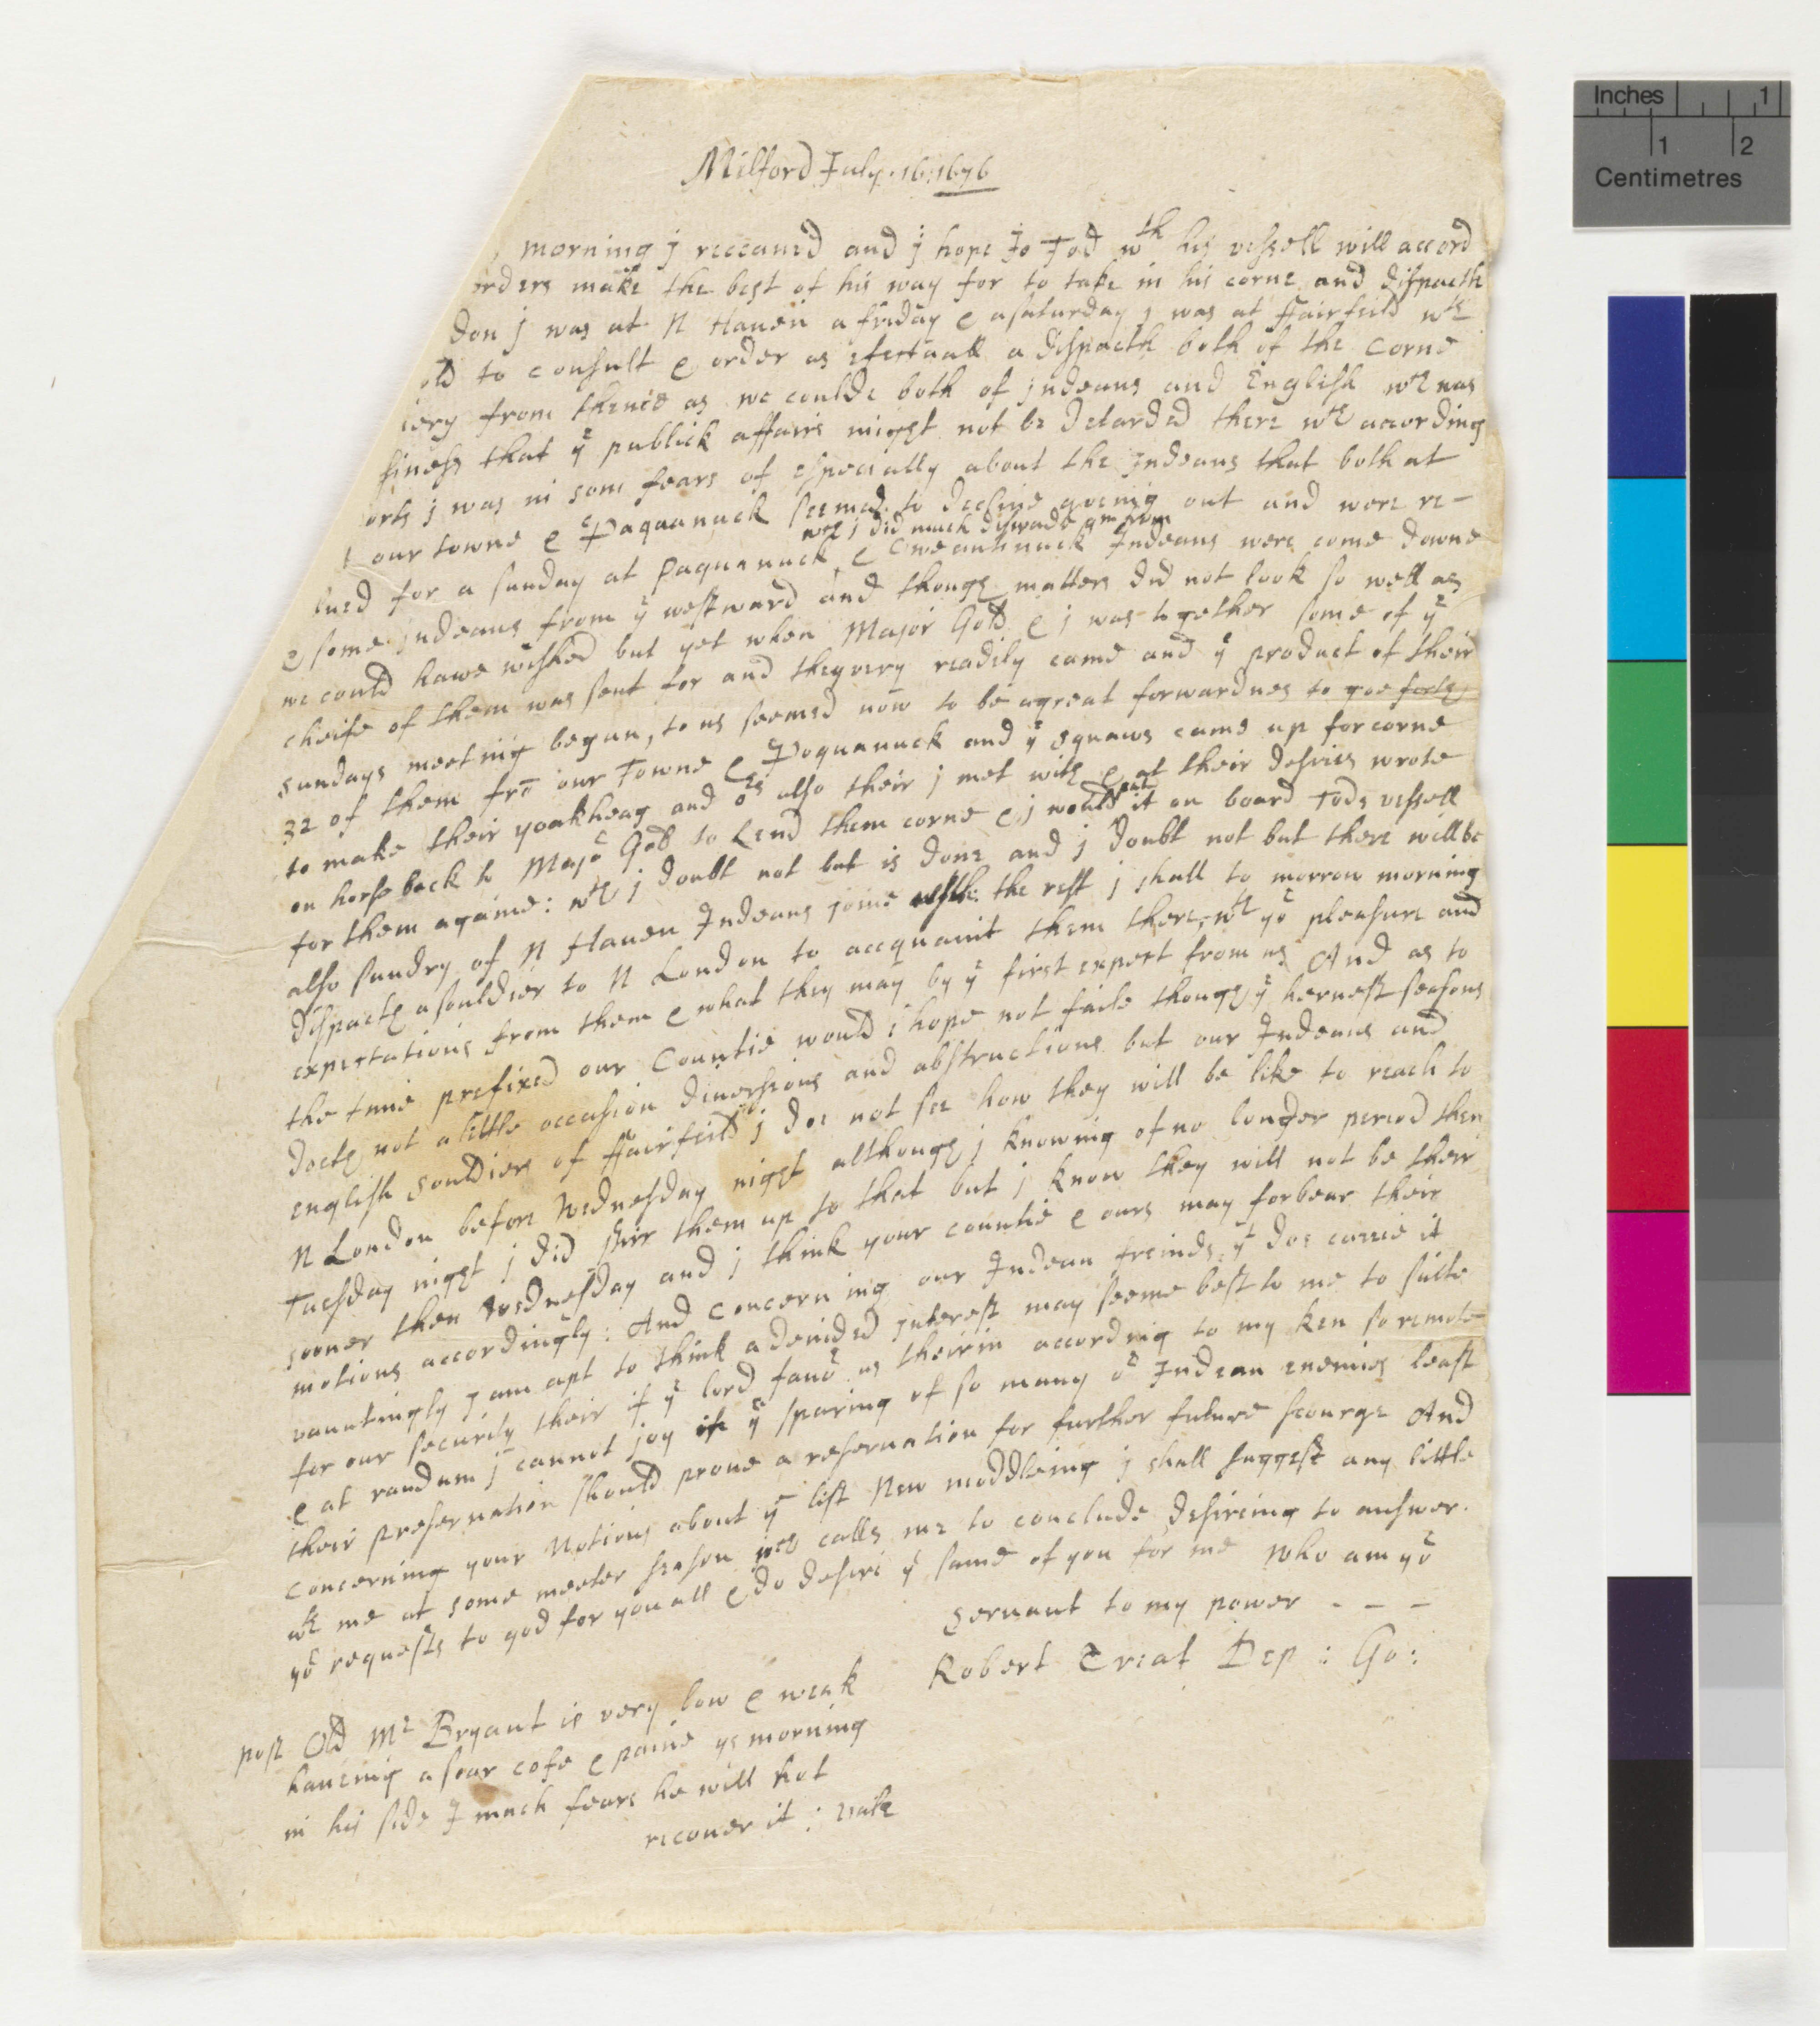 Milford July : 16 : 1676
morning j receaued and j hope Jo Tod wth his vessell will accord
orders make the best of his way for to take in his corne and dispacth
don j was at N Hauen a friday & a saturday j was at ffairfeild wch
old to consult & order as efectuall a dispacth both of the corne
from thence as we coulde both of jndeans and English wch was
siness that ye publick affairs might not be Detarded there wch according
orts j was in som fears of especially about the jndeans that both at
our towne & Paquanuck seemed to decline goeing out and were re-
wch j did much diswade ym from
lued for a sunday at Paquanuck & Oweantinuck Indeans were come downe
& some jndeans from ye westward and though matters did not look so well as
we could hawe wished but yet when Major Gold & j was together some of ye
cheife of them was sent for and they very readily came and ye product of their
sundays meeting began, to us seemed now to be a great forwardnes to goe forth
32 of them frō our Towne & Poquanuck and ye squaws came up for corne
to make their yoakheag and ors also their j met with & at their desires wrote
on horse back to Majr Gold to Lend them corne & j would put it on board Tods vessell
for them againe : wch j doubt not but is done and j doubt not but there will be
also sundry of N Hauen Indeans joine with the rest j shall to morrow morning
dispacth a souldier to N London to accquaint them there, wth yor pleasure and
expectations from them & what they may by ye first expect from us And as to
the time prefixed our Countie would i hope not faile though ye heruest seasons
doeth not a little occasion diuersions and abstructions but our Indeans and
english souldiers of ffairfeild j doe not see how they will be like to reach to
N London before Wednesday night although j knowing of no longer period then
Tuesday night j did stirr them up to that but j know they will not be their
sooner then Wednesday and j think your countie & ours may forbear their
motions accordingly : And concerning our Indean freinds yt doe carrie it
vauntingly j am apt to think a deuided jnterest may seeme best to me to suite
for our security their if ye lord fauor us theirin according to my ken so remote
& at randum j cannot joy in ye sparing of so many or Indean enemies least
their preseruation should proue a reseruation for further future scourge And
concerning your Notions about ye list New moddleing j shall suggest any little
wth me at some meeter season wch calls me to conclude desireing to answer.
yor requests to god for you all & do desire ye same of you for me who am yor
seruant to my power - - -
Robert Treat Dep : Go :
post Old Mr Bryant is very low & weak
haueing a soar cofe & paine ys morning
in his side I much feare he will not
recouer it : vale